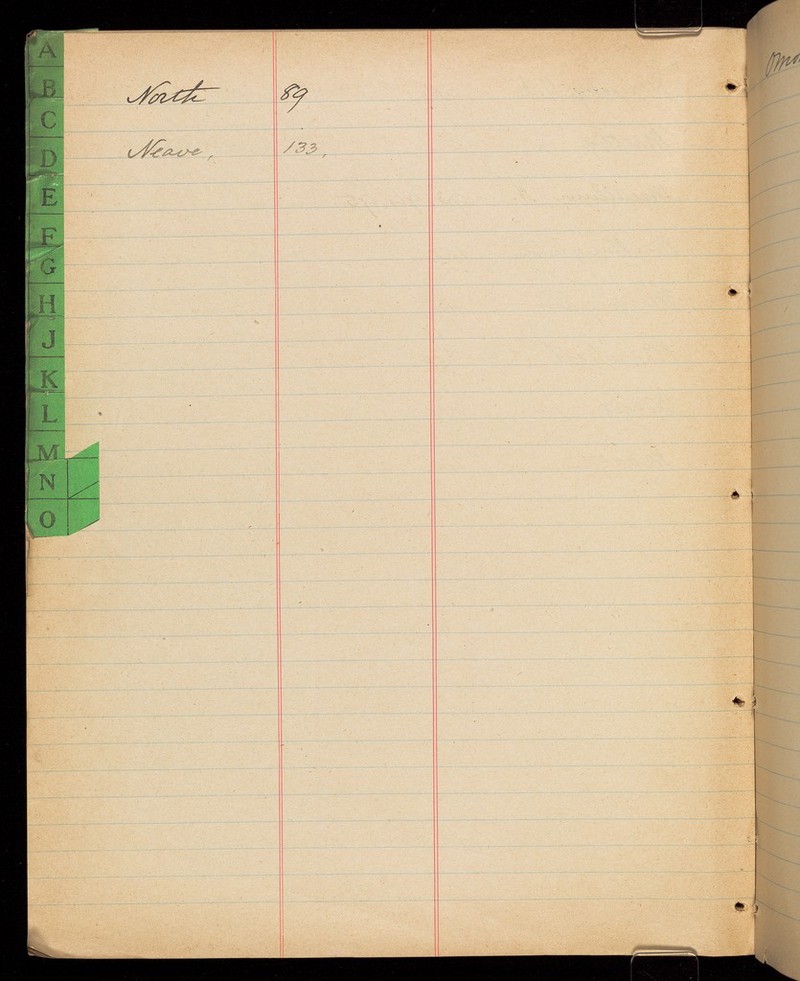 A
B
C
D
E
F
G
H
J
K
L
M
N
O
North 89
Neave, 133,